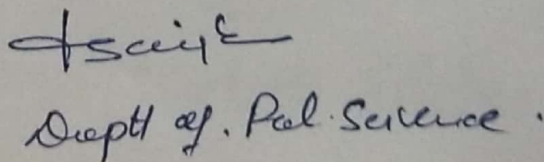 Deptt of. Pol. Science.